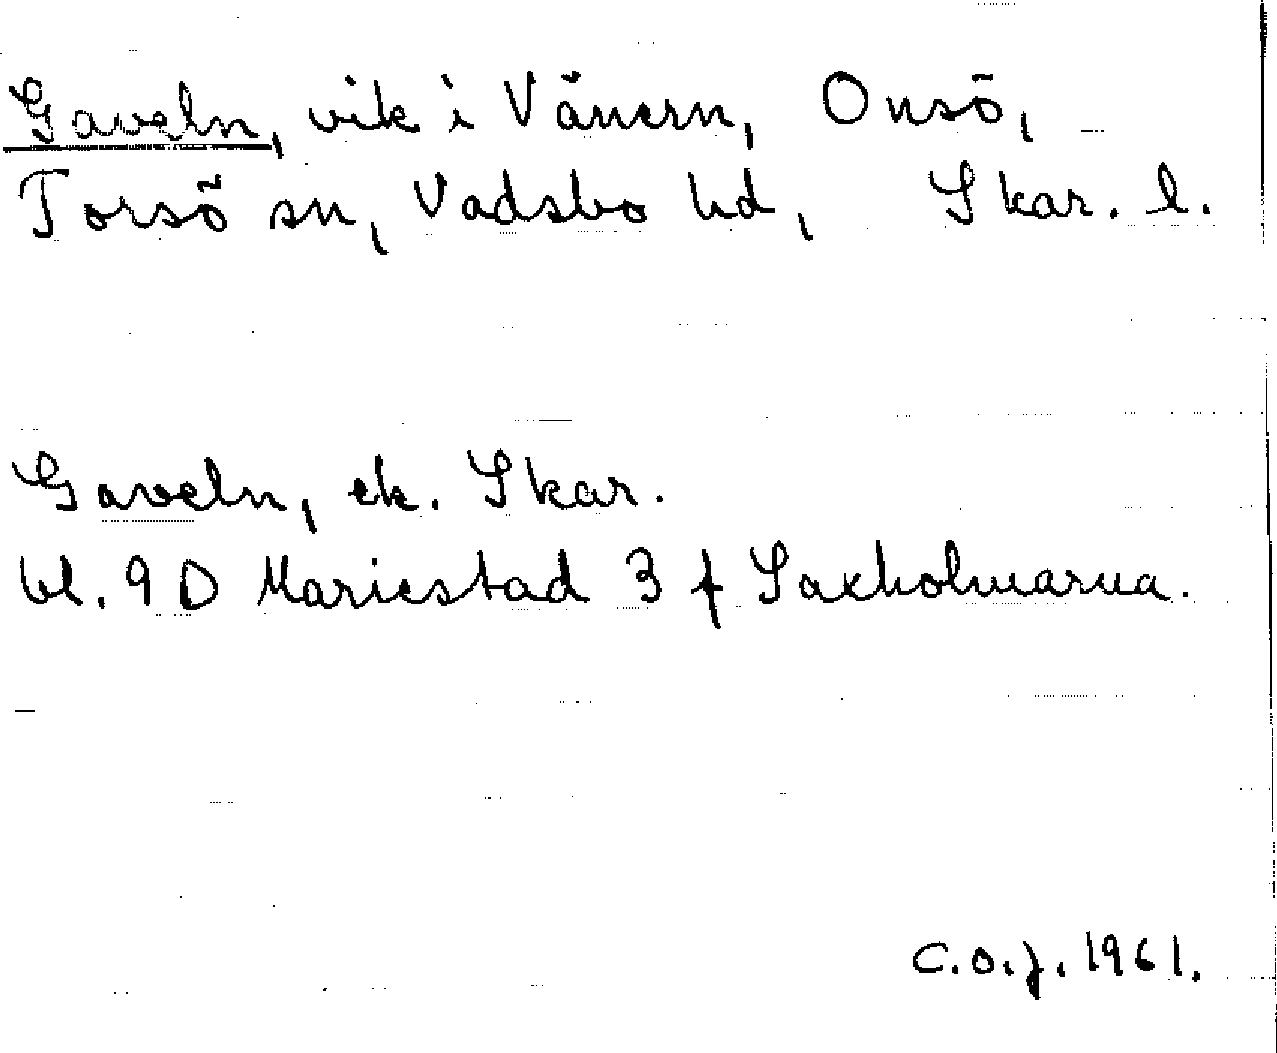 Gaveln, vik i Vänern, Onsö,
Torsö sn, Vadsbo hd, Skar. l.
Gaveln, ek. Skar.
bl. 9 D Mariestad 3 f Saxholmarna.
C.O.J. 1961.